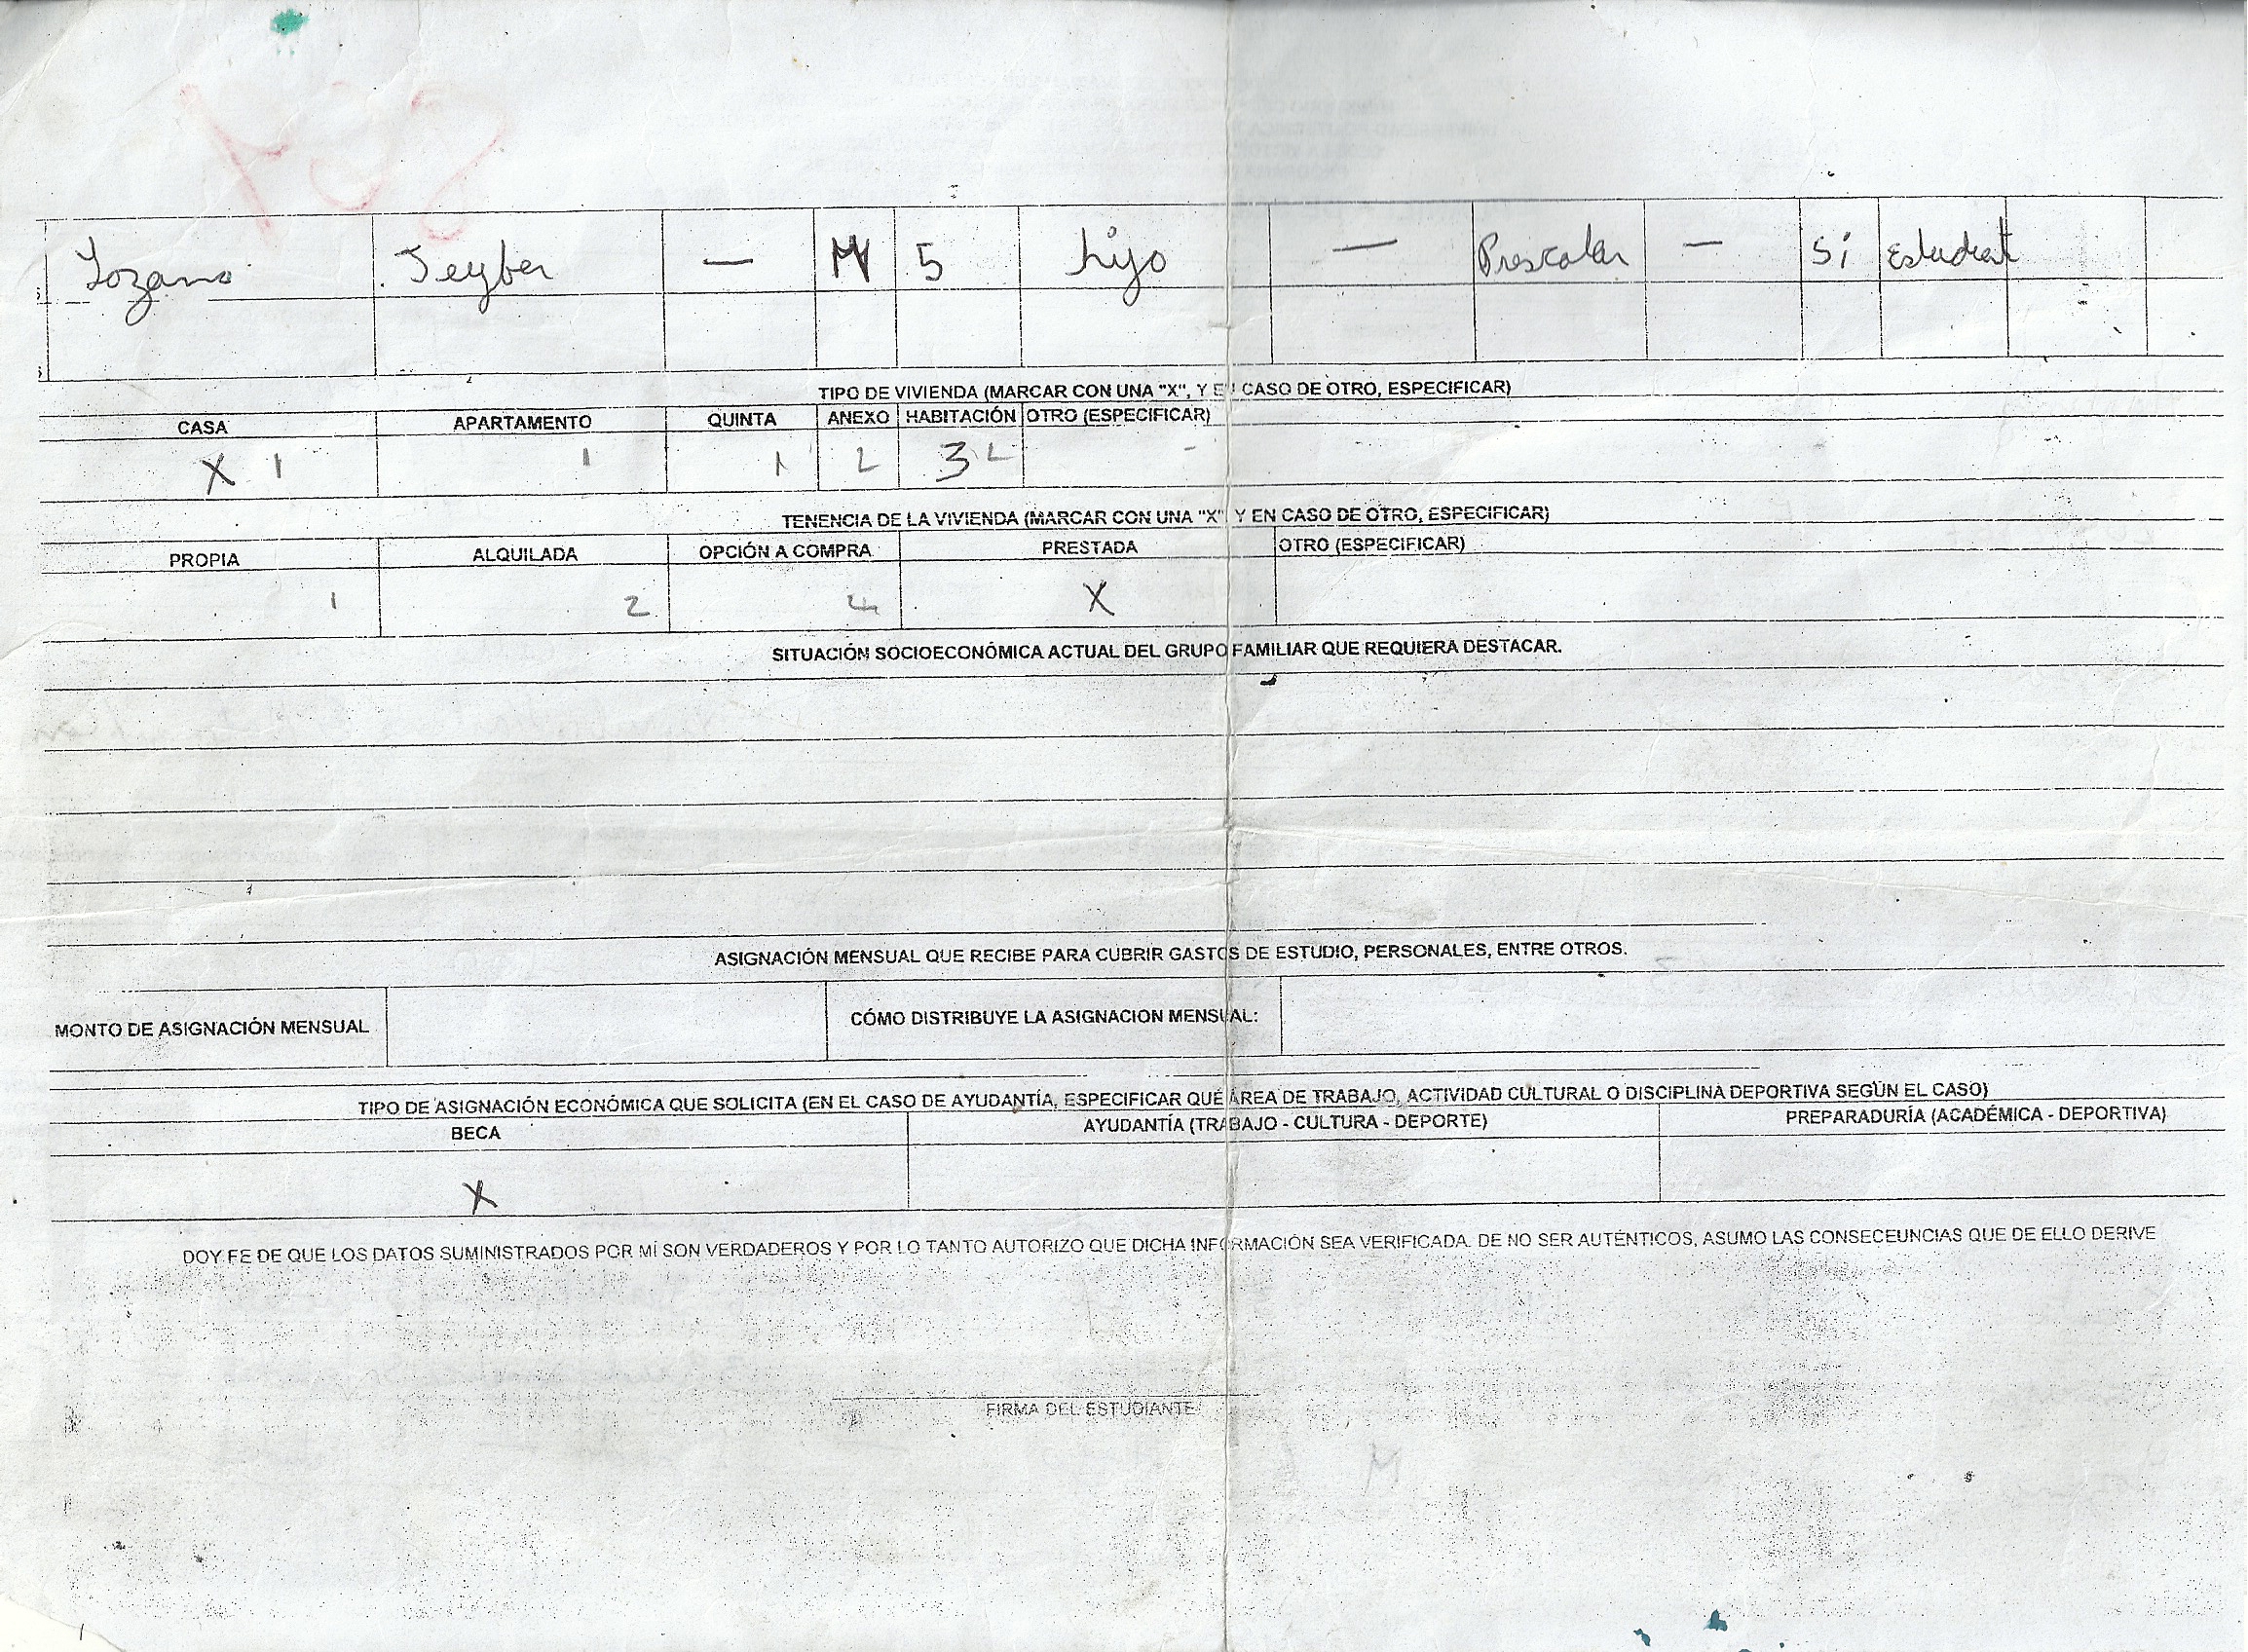 Lozano Jeyber — M 5 hijo — Prescolar — Si Estudiant
TIPO DE VIVIENDA (MARCAR CON UNA "X", Y EN CASO DE OTRO, ESPECIFICAR)
CASA APARTAMENTO QUINTA ANEXO HABITACIÓN OTRO (ESPECIFICAR)
X 1 1 1 2 3 2 -
TENENCIA DE LA VIVIENDA (MARCAR CON UNA "X" Y EN CASO DE OTRO, ESPECIFICAR)
PROPIA ALQUILADA OPCIÓN A COMPRA PRESTADA OTRO (ESPECIFICAR)
1 2 X
SITUACIÓN SOCIOECONÓMICA ACTUAL DEL GRUPO FAMILIAR QUE REQUIERA DESTACAR.
ASIGNACIÓN MENSUAL QUE RECIBE PARA CUBRIR GASTOS DE ESTUDIO, PERSONALES, ENTRE OTROS.
MONTO DE ASIGNACIÓN MENSUAL CÓMO DISTRIBUYE LA ASIGNACION MENSUAL:
TIPO DE ASIGNACIÓN ECONÓMICA QUE SOLICITA (EN EL CASO DE AYUDANTÍA, ESPECIFICAR QUÉ ÁREA DE TRABAJO, ACTIVIDAD CULTURAL O DISCIPLINA DEPORTIVA SEGÚN EL CASO)
BECA AYUDANTÍA (TRABAJO - CULTURA - DEPORTE) PREPARADURÍA (ACADÉMICA - DEPORTIVA)
X
DOY FE DE QUE LOS DATOS SUMINISTRADOS POR MÍ SON VERDADEROS Y POR LO TANTO AUTORIZO QUE DICHA INFORMACIÓN SEA VERIFICADA. DE NO SER AUTÉNTICOS, ASUMO LAS CONSECEUNCIAS QUE DE ELLO DERIVE
FIRMA DEL ESTUDIANTE